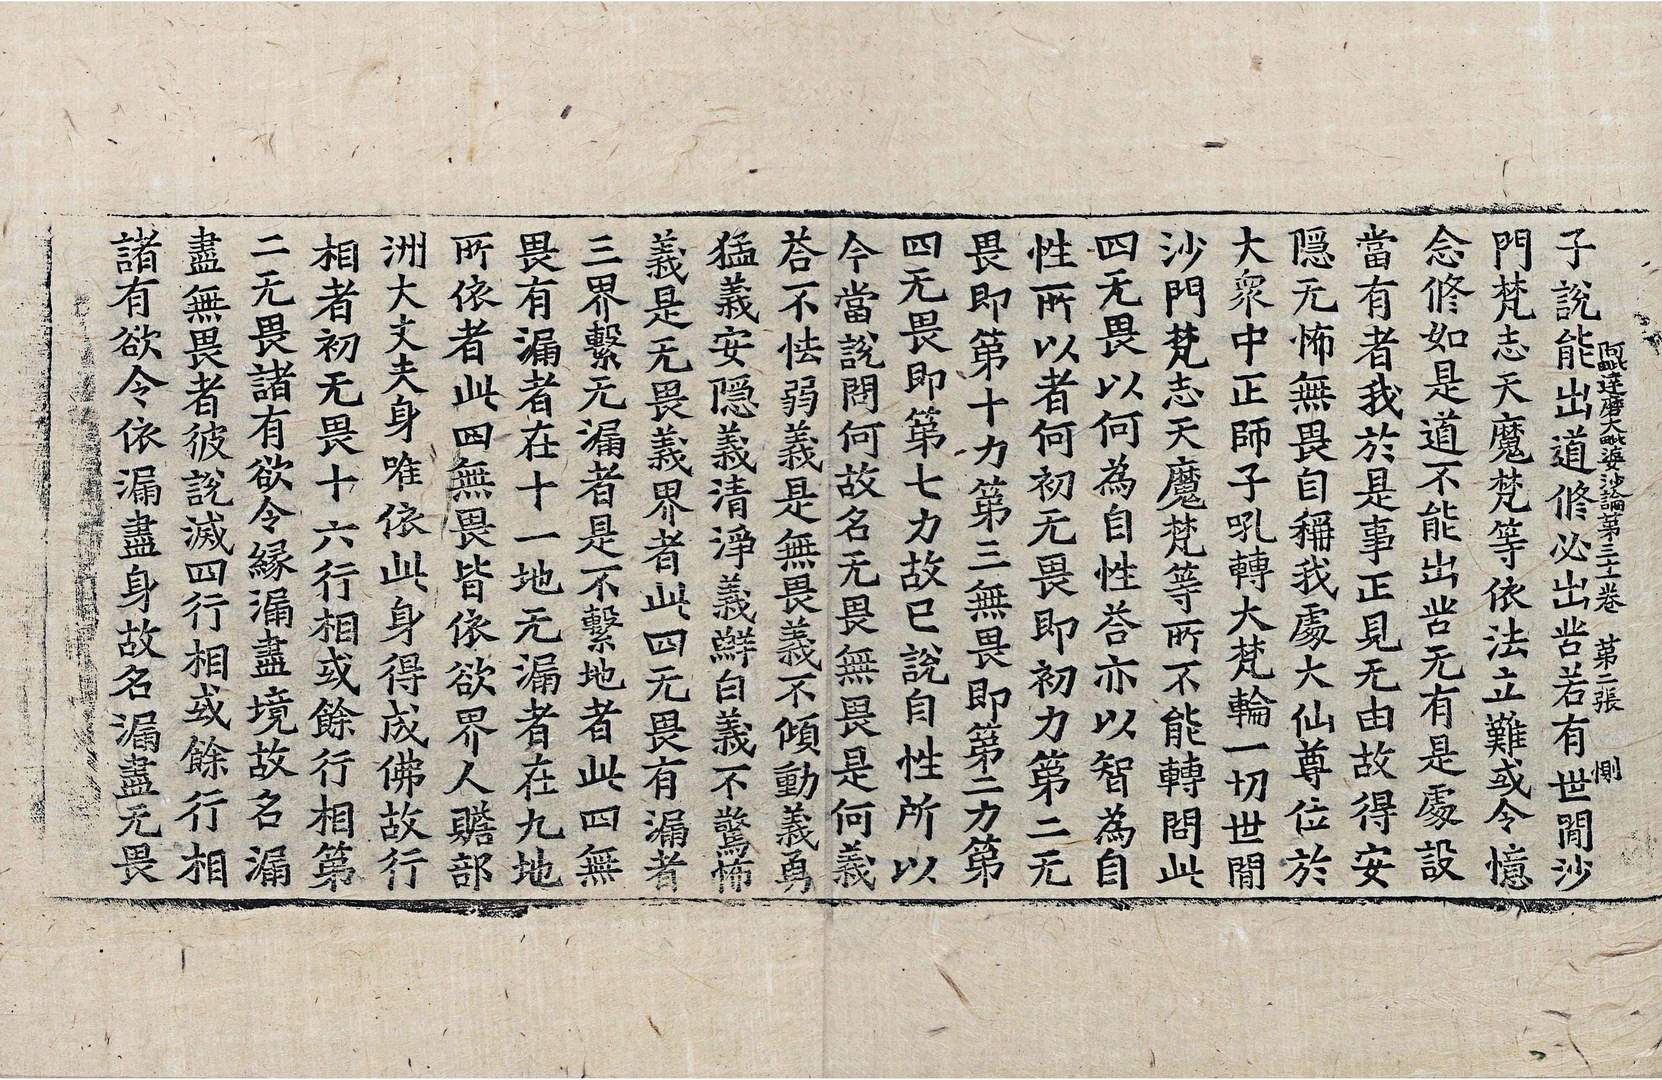 阿毗達磨大毗婆沙論第三十一卷 第二張 惻
子說能出道修必出苦若有世閒沙
門梵志天魔梵等依法立難或令憶
念修如是道不能出苦无有是處設
當有者我於是事正見无由故得安
隱无怖無畏自稱我處大仙尊位於
大衆中正師子吼轉大梵輪一切世閒
沙門梵志天魔梵等所不能轉問此
四无畏以何為自性荅亦以智為自
性所以者何初无畏即初力第二无
畏即第十力第三無畏即第二力第
四无畏即第七力故已說自性所以
今當說問何故名无畏無畏是何義
荅不怯弱義是無畏義不傾動義勇
猛義安隱義清淨義鮮白義不驚怖
義是无畏義界者此四无畏有漏者
三界繫无漏者是不繫地者此四無
畏有漏者在十一地无漏者在九地
所依者此四無畏皆依欲界人贍部
洲大丈夫身唯依此身得成佛故行
相者初无畏十六行相或餘行相第
二无畏諸有欲令緣漏盡境故名漏
盡無畏者彼說滅四行相或餘行相
諸有欲令依漏盡身故名漏盡无畏